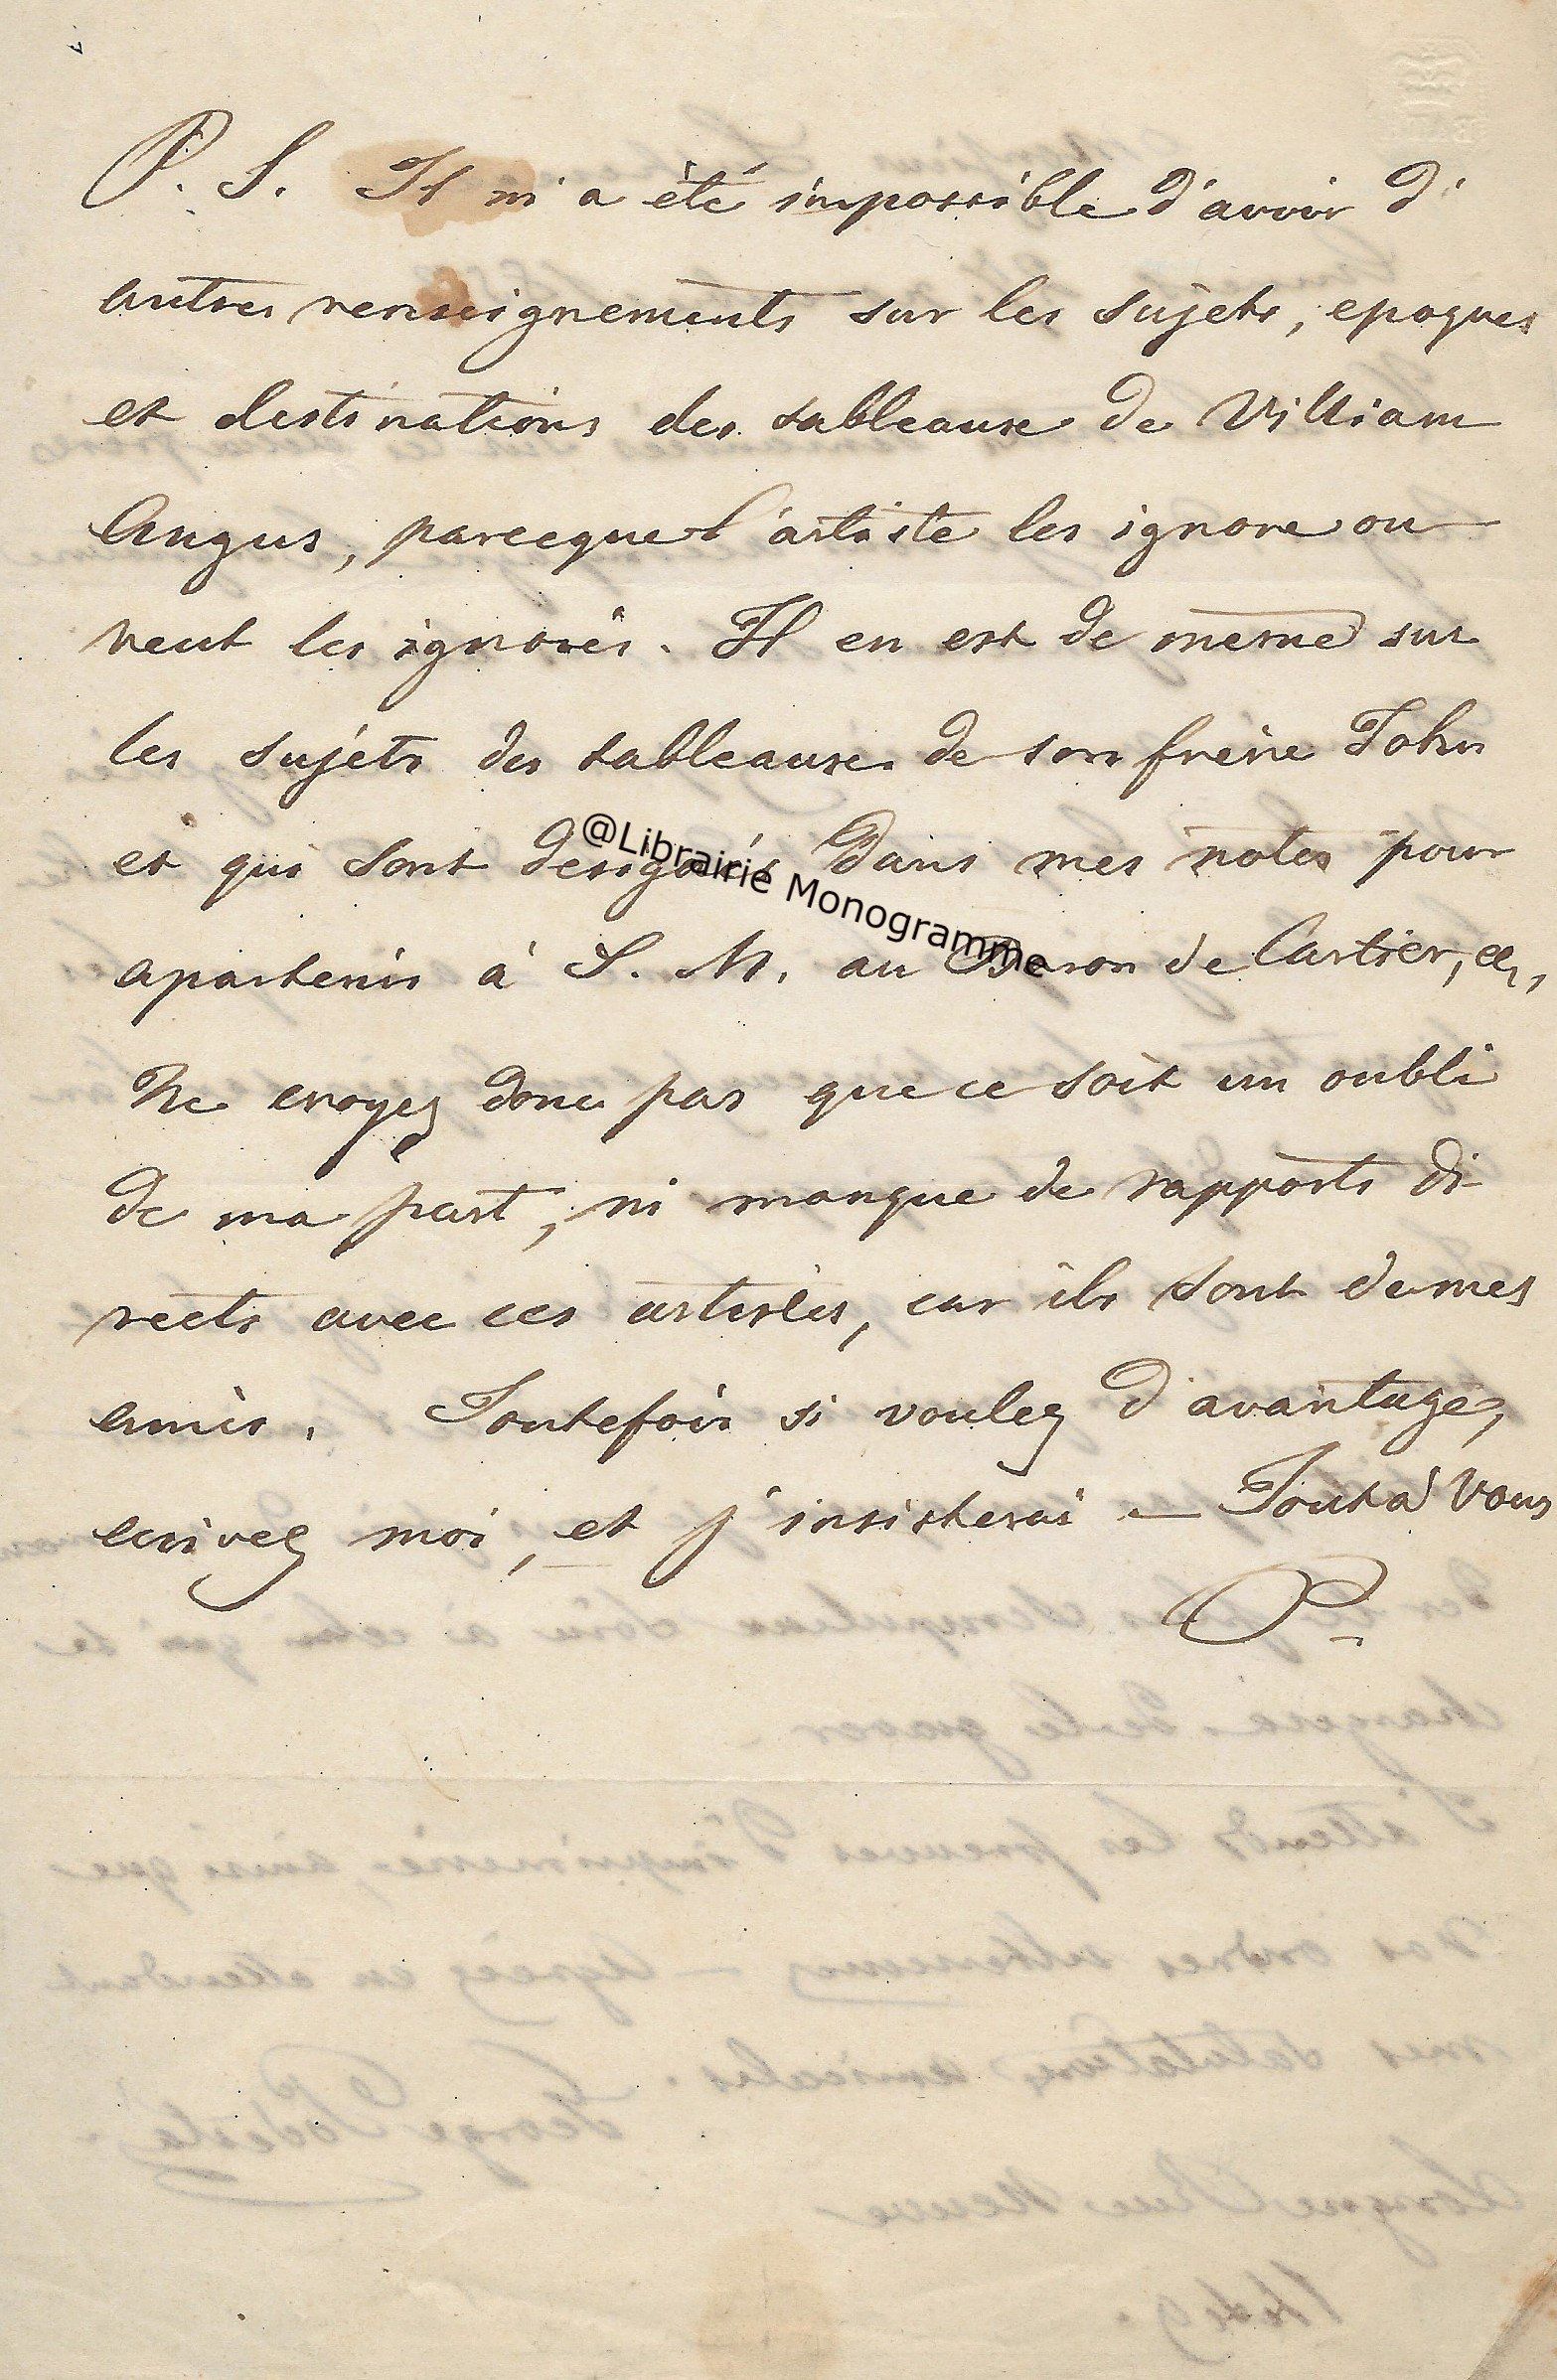 P. S. Il m'a été impossible d'avoir d'
autres renseignements sur les sujets, epoques
et destinations des tableaux de William
Angus, parceque l'artiste les ignore ou
veut les ignorer. Il en est de meme sur
les sujets des tableaux de son frère John
et qui sont designés dans mes notes pour
apartenir à S. M. au Baron de Cartier, &c,
@Librairie Monogramme
Ne croyez donc pas que ce soit un oubli
de ma part, ni manque de rapports di-
rects avec ces artistes, car ils sont de mes
amis. Toutefois si voulez d'avantage,
ecrivez moi, et j'insisterai — Tout à Vous
P.